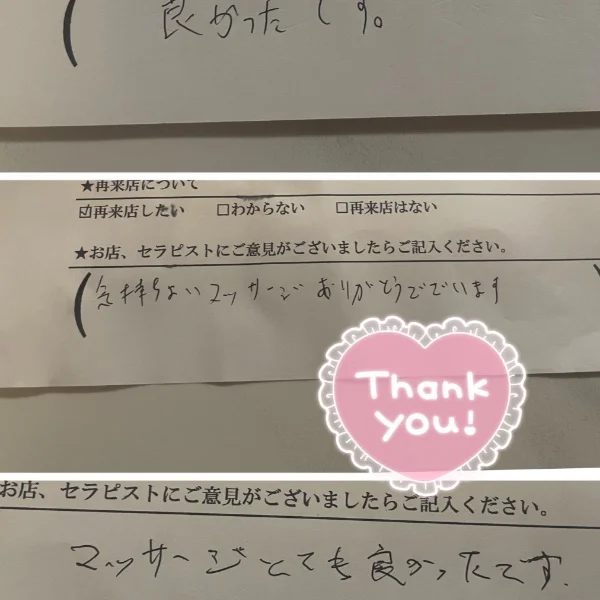 良かったです。
★再来店について
☑再来店したい □わからない □再来店はない
★お店、セラピストにご意見がございましたらご記入ください。
気持ちよいマッサージ ありがとうでています
Thank
you!
お店、セラピストにご意見がございましたらご記入ください。
マッサージとても良かったです.